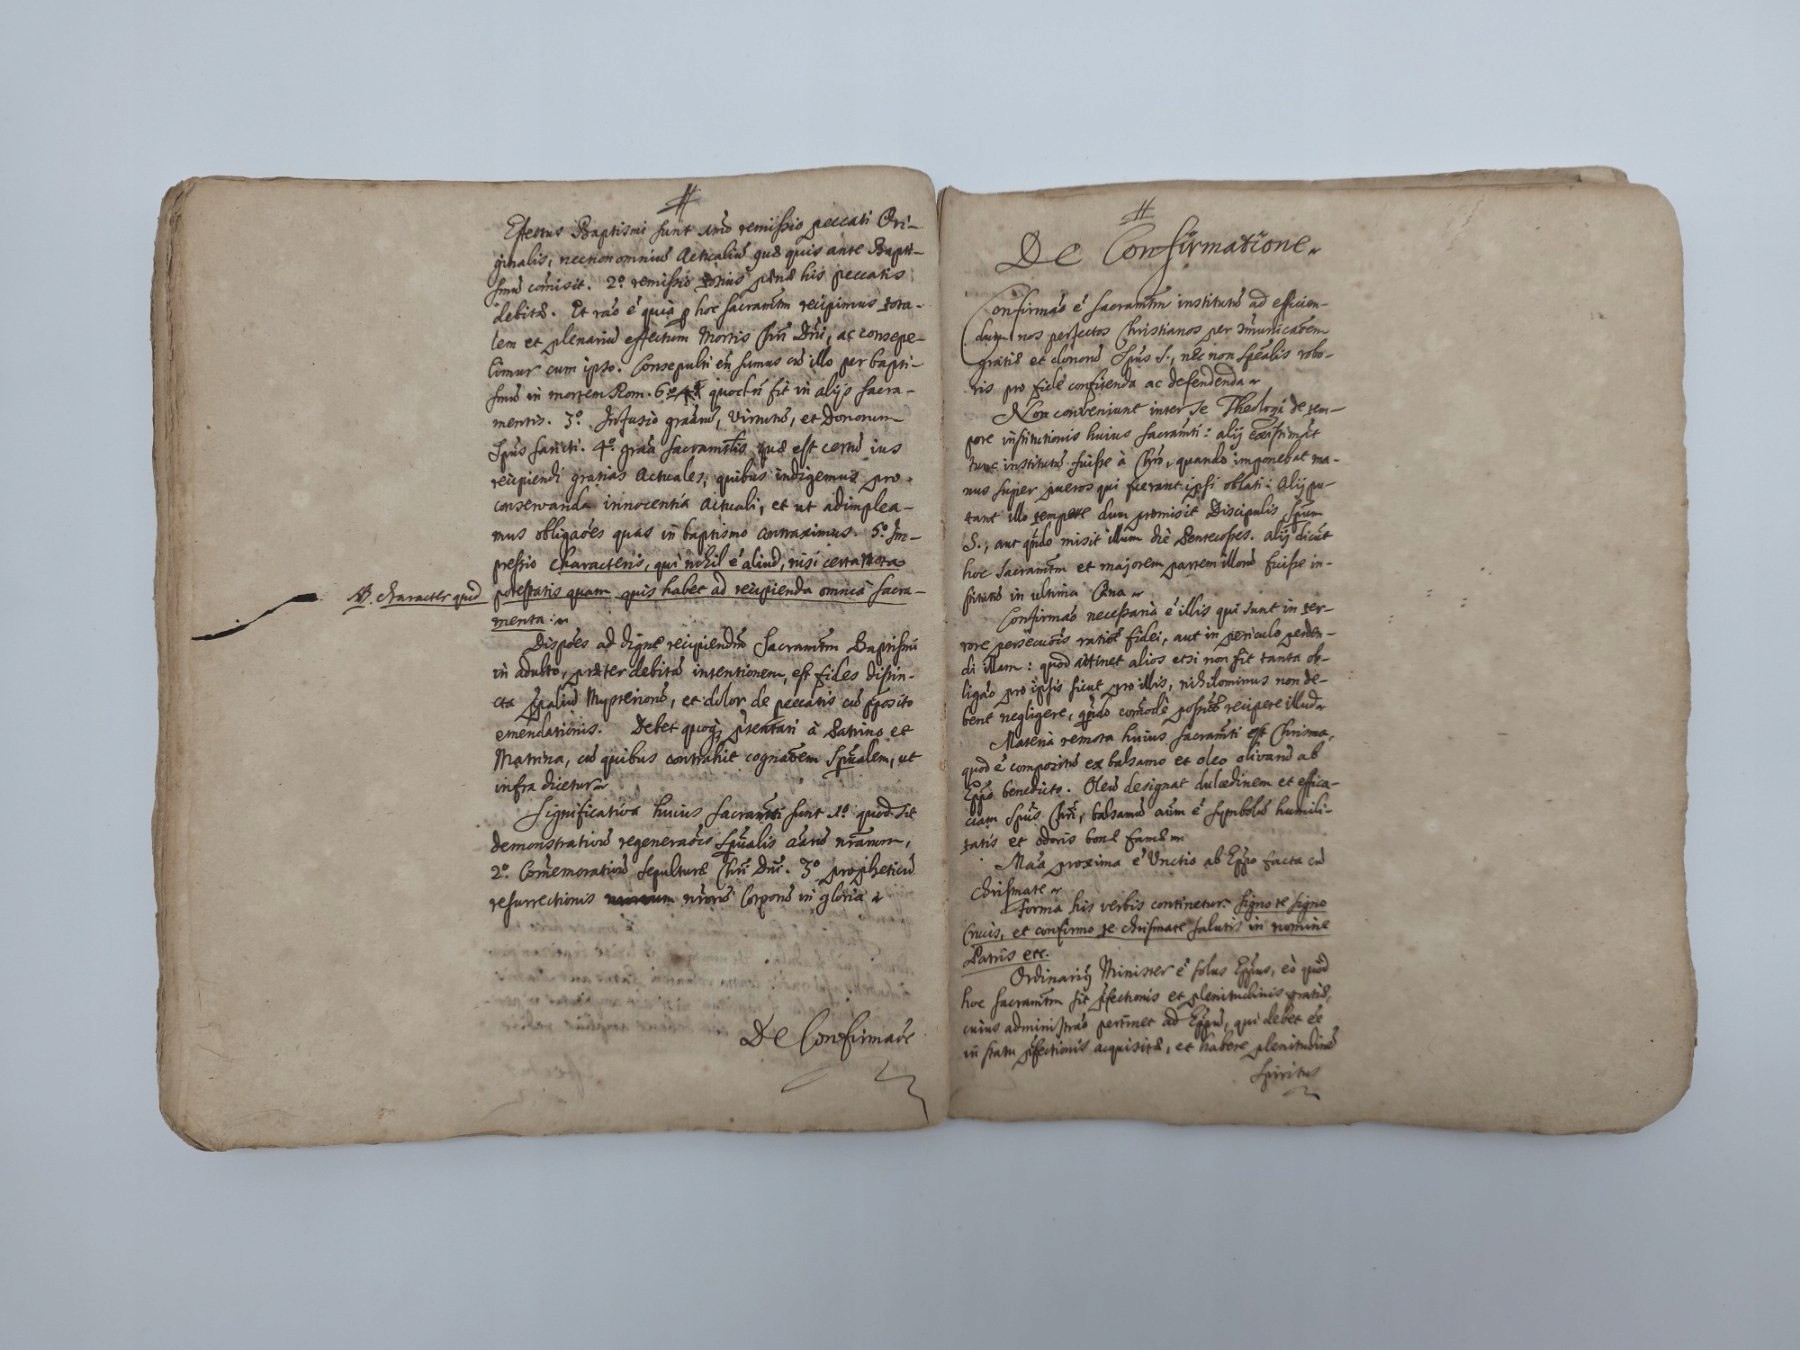 #
Effectus Baptismi sunt 1mo remissio peccati Ori-
ginalis, necnon omniũ Actualiũ quæ quis ante Bapti-
smũ comisit. 2º remissio totius pænæ his peccatis
debitæ. Et rão é quia p hoc sacramtm recipimus tota-
lem et plenariũ effectum Mortis Chri Dni, ac consepe-
limur cum ipso. Consepulti en̄ sumus cũ illo per bapti-
smũ in mortem Rom. 6º quod n̄ fit in alijs sacra-
mentis. 3º Infusio graarũ, Virtutũ, et Donorum
Spũs sancti. 4º graa Sacramtlis quæ est certũ ius
recipiendi gratias Actuales, quibus indigemus pro
conservanda innocentia actuali, et ut adimplea-
mus obligaões quas in baptismo contraximus. 5º Im-
pressio characteris, qui nihil é aliud, nisi certa Nota
NB. character quid
potestatis quam quis habet ad recipienda omnia sacra-
menta.
Dispões ad digne recipiendũ Sacramtm Baptismi
in adulto, præter debitã intentionem, est fides distin-
cta Spaliũ Mysteriorũ, et dolor de peccatis cũ pposito
emendationis. Debet quoq; psentari à Patrino et
Matrina, cũ quibus contrahit cognaõem Spũalem, ut
infra dicetur
Significativa huius sacramti sunt 1º quod sit
demonstrativũ regeneraõis Spũalis aãrũ nr̃arum,
2º. Comemorativũ sepulturæ Chri Dni. 3º propheticũ
resurrectionis nrorũ Corporũ in gloria
De Confirmaõe
#
De Confirmatione
Confirmaõ é sacramtm institutũ ad efficien-
dum nos perfectos Christianos per comunicaõem
gratiæ et donorũ Spũs S., nec non spẽalis robo-
ris pro fide confitenda ac defendenda
Non conveniunt inter se Theologi de tem-
pore institutionis huius sacramti: alij existimãt
tunc institutũ fuisse à Chro, quando imponebat ma-
nus super pueros qui fuerant ipsi oblati: Alij pu-
tant illo tempore dum promisit Discipulis Spũm
S., aut qñdo misit illum die Pentecostes. alij dicũt
hoc Sacramtm et majorem partem illorũ fuisse in-
stitutũ in ultima Cæna
Confirmaõ necessaria é illis qui sunt in ter-
rore persecuõis ratiõe fidei, aut in periculo perden-
di illam: quod attinet alios etsi non sit tanta ob-
ligaõ pro ipsis sicut pro illis, nihilominus non de-
bent negligere, quãdo comodè possũt recipere illud
Materia remota huius sacramti est Chrisma,
quod é compositũ ex balsamo et oleo olivarũ ab
Eppo benedicto. Oleũ designat dulcedinem et effica-
ciam Spũs Chri, balsamũ aũm é symbolũ humili-
tatis et odoris bonæ famæ
Maa proxima é Unctio ab Eppo facta cũ
chrismate
Forma his verbis continetur. Signo te signo
Crucis, et confirmo te chrismate salutis in nomine
Patris etc.
Ordinariũ Minister é solus Eppus, eò quòd
hoc sacramtm sit pfectionis et plenitudinis gratiæ,
cuius administraõ pertinet ad Eppũ, qui debet ee
in statu pfectionis acquisitæ, et habere plenitudinẽ
spiritus